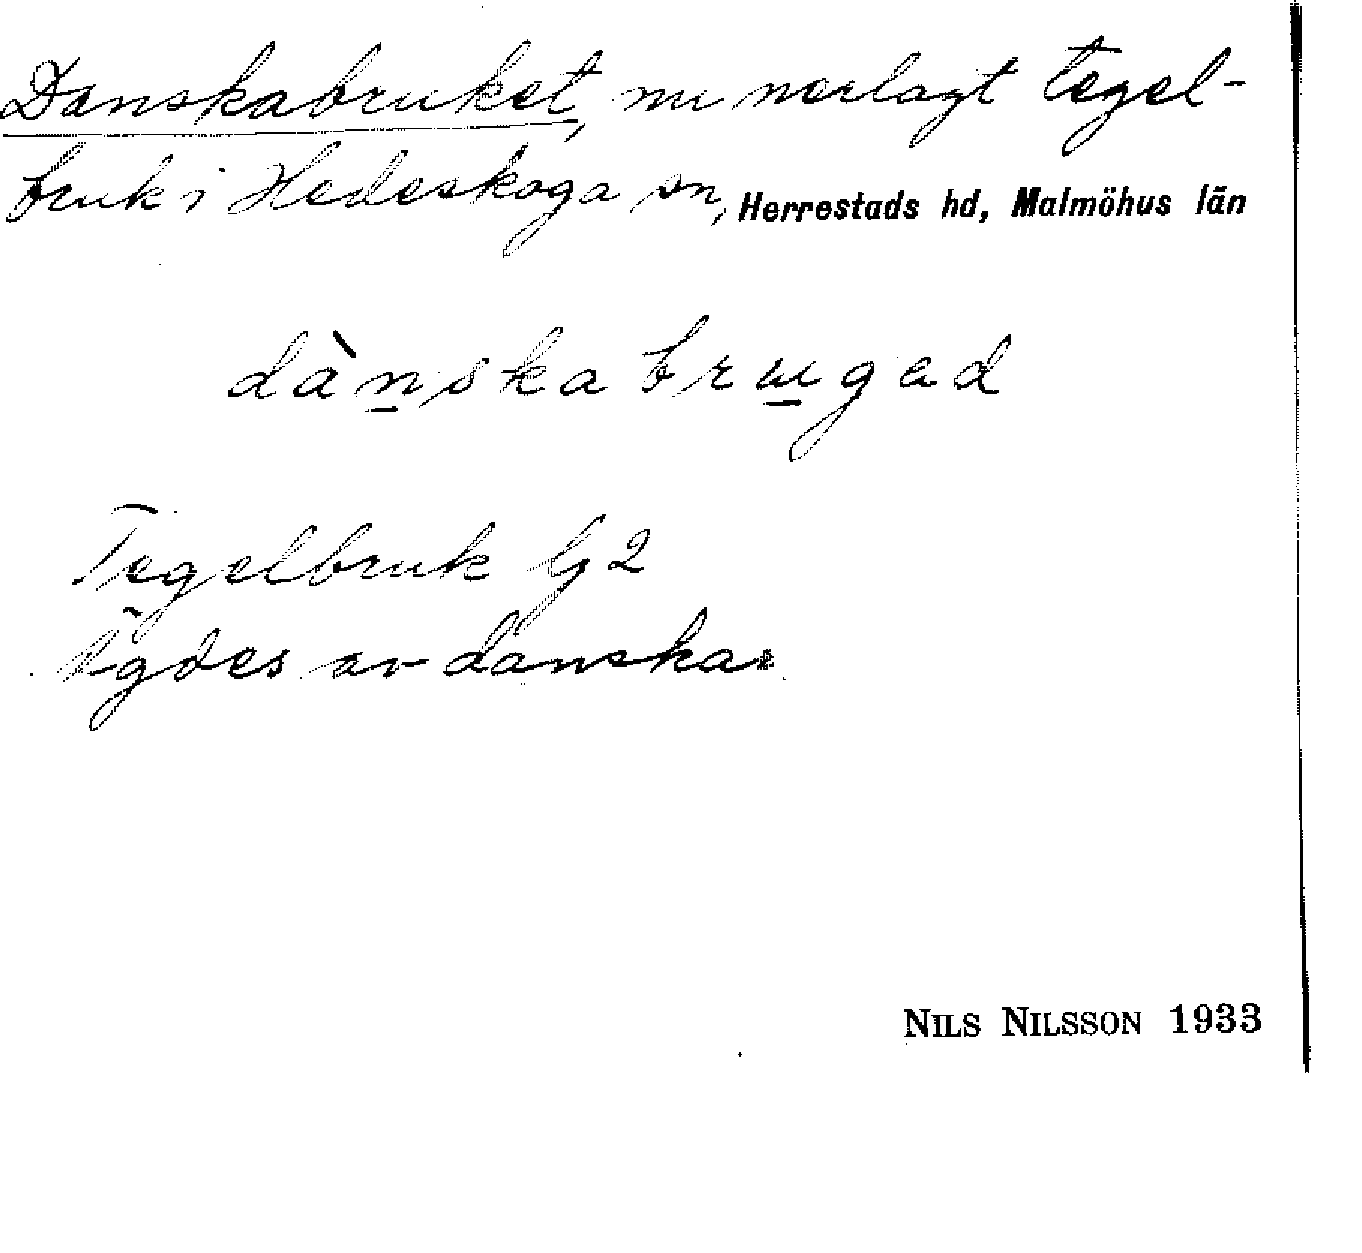 Danskabruket, nu nerlagt tegel-
bruk i Hedeskoga sn, Herrestads hd, Malmöhus län
dànska brugad
Tegelbruk G 2
Ägdes av danskar
NILS NILSSON 1933